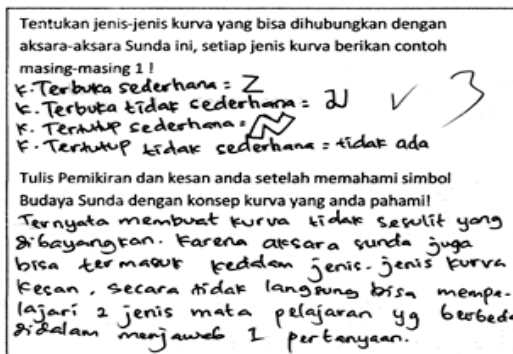 Tentukan jenis-jenis kurva yang bisa dihubungkan dengan
aksara-aksara Sunda ini, setiap jenis kurva berikan contoh
masing-masing 1 !
K. Terbuka sederhana = Z
K. Terbuka tidak sederhana =
K. Tertutup sederhana =
K. Tertutup tidak sederhana = tidak ada
3
Tulis Pemikiran dan kesan anda setelah memahami simbol
Budaya Sunda dengan konsep kurva yang anda pahami!
Ternyata membuat kurva tidak sesulit yang
dibayangkan. Karena aksara sunda juga
bisa termasuk kedalam jenis-jenis kurva
Kesan, secara tidak langsung bisa mempe-
lajari 2 jenis mata pelajaran yg berbeda
didalam menjawab 1 pertanyaan.